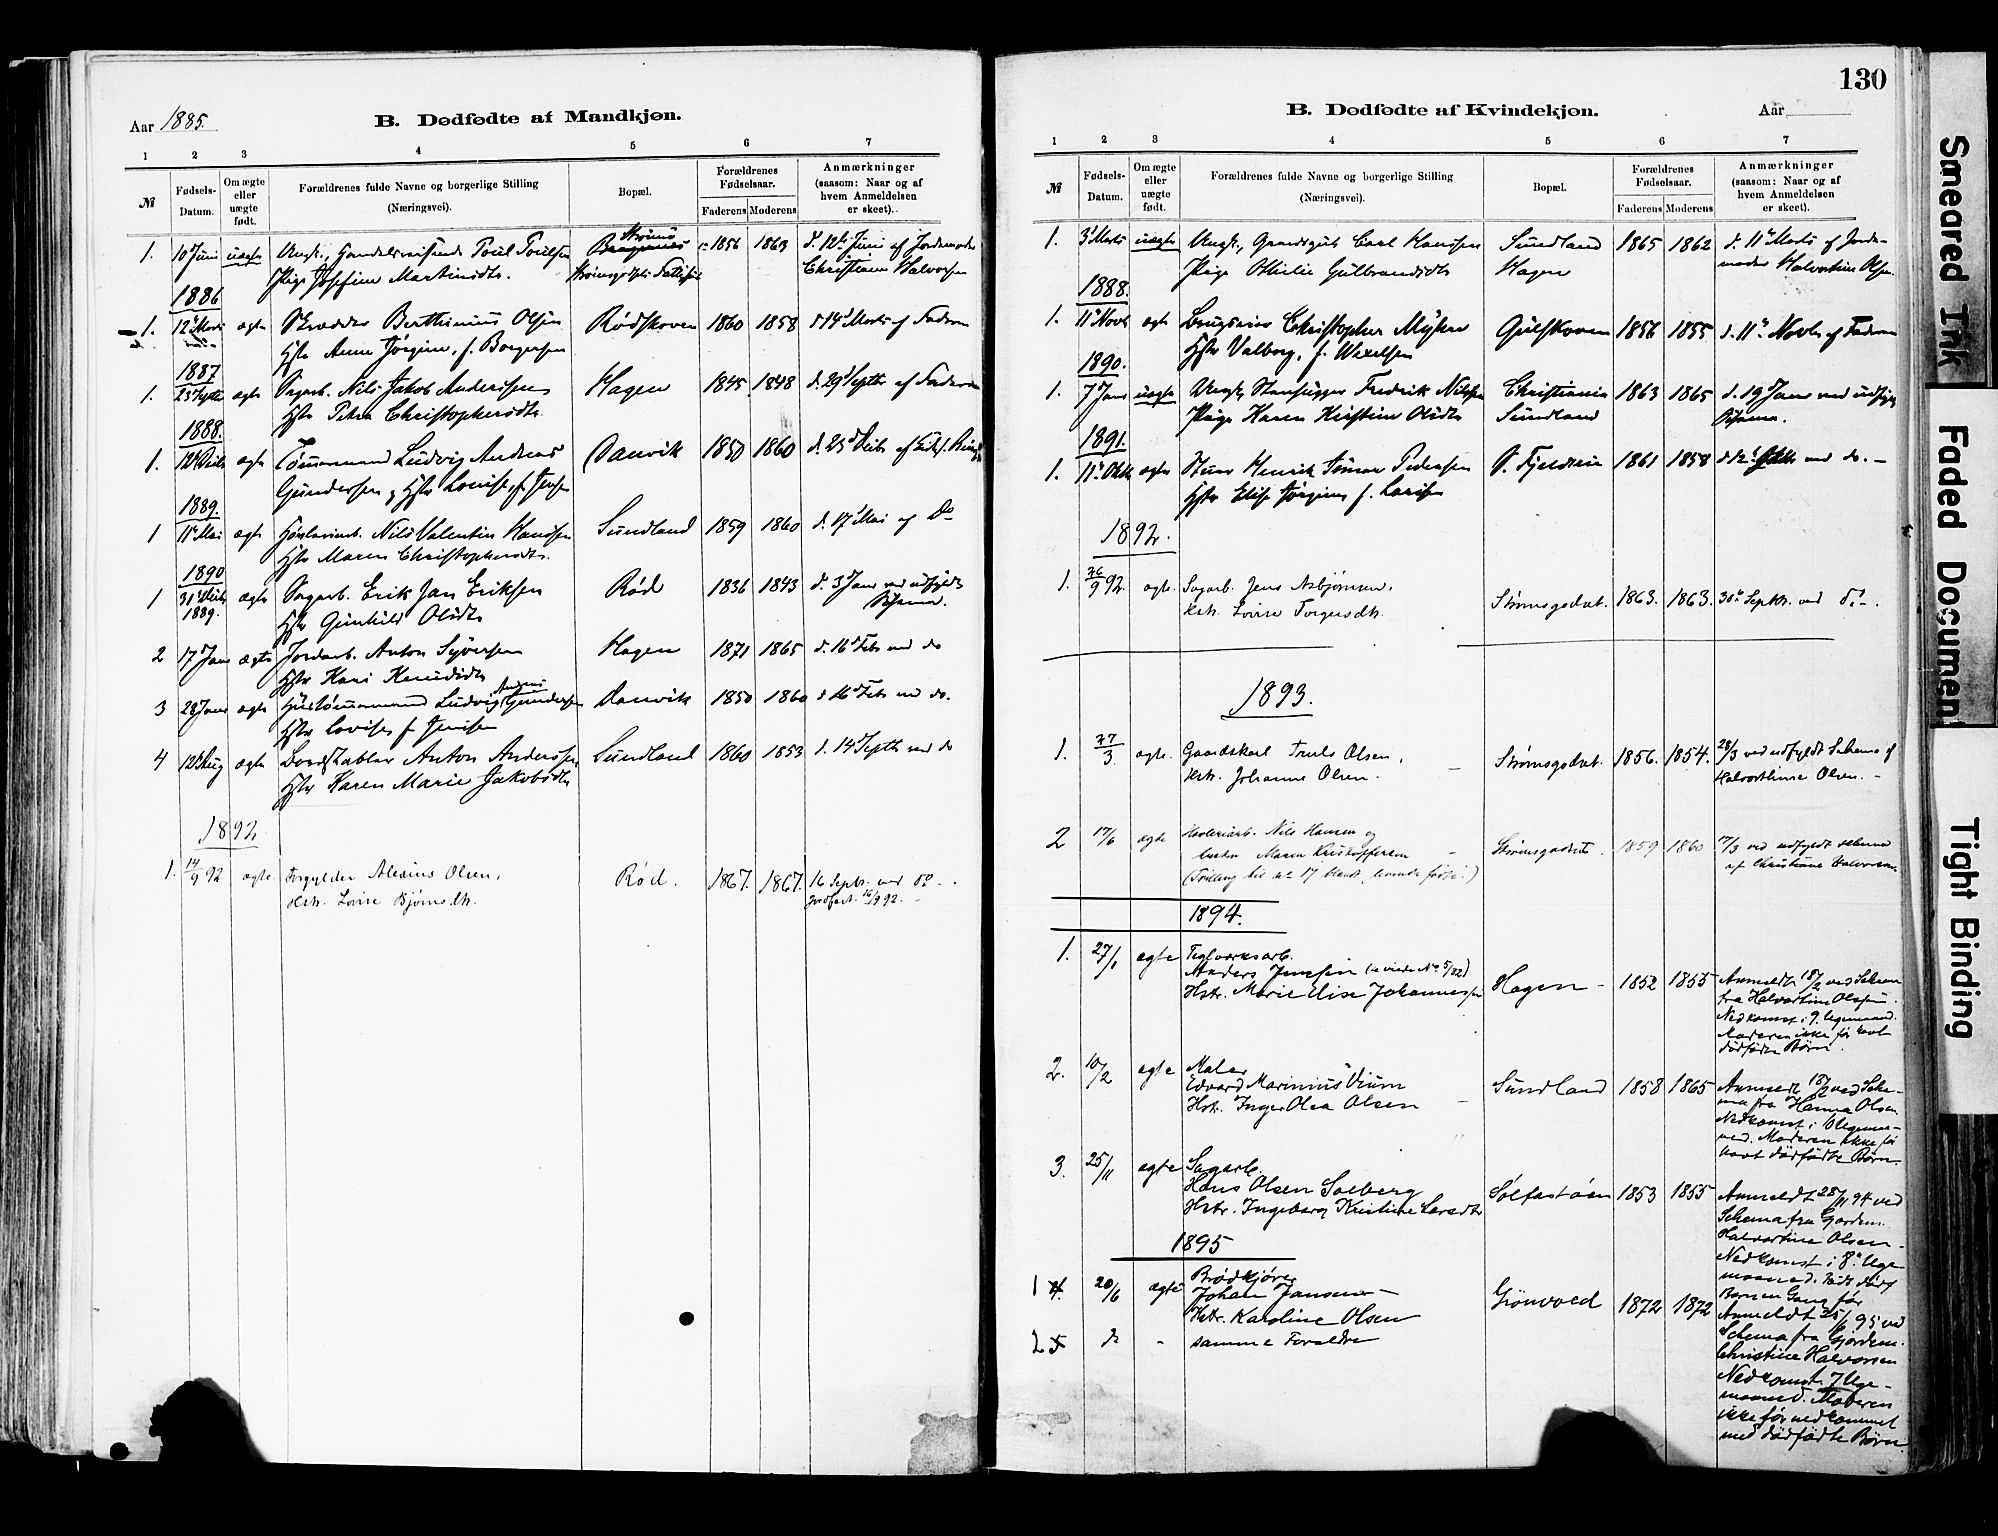 Aar 1885.
B. Dødfødte af Mandkjøn.
1 2 3 4 5 6 7
№
Fødsels-Datum.
Om ægte eller uægte født.
Forældrenes fulde Navne og borgerlige Stilling (Næringsvei).
Bopæl.
Forældrenes Fødselsaar.
Faderens Moderens
Anmærkninger (saasom: Naar og af hvem Anmeldelsen er skeet).
1. 10 Juni uægte Poul Poulsen 1856 1863 d. 12te Juni af Jordemoder
Pige Josefine Martinsdt. Christiane Halvorsen
1886
1. 12 Marts ægte Skrædder Berthinius Olsen Rødskoven 1860 1858 d 14 Marts af Faderen
Hstr Anne Jørgine, f. Borgersen
1887
1. 23 Septbr ægte Sagarb. Nils Jakob Anderssen Hagen 1845 1848 d. 29 Septbr af Faderen
Hstr Petra Christophersdt.
1888.
1. 12 ægte Tømmermand Ludvig Andreas Danvik 1850 1860
Gundersen, Hstr Louise, f. Jensen
1889.
1 11 Mai ægte Nils Valentin Hanssen Sundland 1859 1860 d. 17 Mai af Do
Hstr Maren Christophersdt.
1890
1 31 1889. ægte Sagarb. Erik Jan Eriksen Rød 1836 1843 d. 3 Janr ved udfyldt Schema.
Hstr Gunhild Olsdt
2 17 Janr ægte Jordarb. Anton Syversen Hagen 1871 1865 d. 16 Febr ved do
Hstr Kari Knudsdt
3 28 Janr ægte Hustømmermand Ludvig Andreas Gundersen Danvik 1850 1860 d 16 Febr ved do.
Hstr Lovise f Jensen
4 12 Aug ægte Bordstabler Anton Anderssen Sundland 1860 1853 d. 14 Septbr ved do
Hstr Karen Marie Jakobsdt
1892
1. 14/9 92 ægte Forgylder Alexius Olsen, Rød. 1867. 1867. 16 Septr. ved do.
Hstr. Lovise Bjørnsdtr. Jordfæst. 16/9 92.
130
B. Dødfødte af Kvindekjøn.
Aar
1 2 3 4 5 6 7
№
Fødsels-Datum.
Om ægte eller uægte født.
Forældrenes fulde Navne og borgerlige Stilling (Næringsvei).
Bopæl.
Forældrenes Fødselsaar.
Faderens Moderens
Anmærkninger (saasom: Naar og af hvem Anmeldelsen er skeet).
1. 3 Marts uægte Ungk., Gaardsgut Carl Hanssen Sundland 1865 1862 d. 11 Marts af Jorde-
Pige Othilie Gulbrandsdt Hagen moder Halvorline Olsen.
1888.
1. 11 Novbr ægte Christopher Myhre Gulskoven 1856 1855 d. 11 Novbr af Faderen
Hstr Valborg, f.
1890.
1. 7 Janr uægte Ungk. Stenhugger Fredrik Nilssen Christiania 1863 1865 d. 19 Janr ved udfyldt
Pige Karen Kirstine Olsdt Sundland Schema.
1891.
1. 11 Oktbr ægte Henrik Pedersen 1861 1858 ved do. -
Hstr Elise Jørgine f. Larsen
1892.
1. 26/9 92 ægte. Sagarb. Jens Asbjørnsen. Strømsgodset. 1863. 1863. 30 Septbr. ved do.
Hstr. Lovise Torgersdtr.
1893.
1. 27/3 ægte. Gaardskarl Truls Olsen, Strømsgodset. 1856. 1854. 28/3 ved udfyldt Schema af
Hstr. Johanne Olsen. Halvorthine Olsen. -
2 17/6 ægte Høvleriarb. Nils Hansen og Strømsgodset. 1859 1860 ved udfyldt schema
hustru Maren Kristoffersen af Christiane Halvorsen
(Tvilling til No 17 blandt levende fødte.)
1894.
1. 27/1 ægte Teglværksarb.
Anders Jensen (se viede No 5/82) Hagen - 1852 1855 Anmeldt 18/2 ved Schema
Hstr. Marie Elise Johannessen fra Halvortine Olsen.
Nedkomst i 9. Ugemaaned.
Moderen ikke før havt
dødfødte Børn.
2. 10/2 ægte Maler
Edvard Marinius Vium Sundland 1858 1865 Anmeldt 18/2 ved Sche-
Hstr. Inger Olea Olsen ma fra Hanna Olsen
Nedkomst i Ugemaa-
ned. Moderen ikke før
havt dødfødte Børn.
3. 25/11 ægte Sagarb.
Hans Olsen Solberg Sølfastøen 1853 1855 Anmeldt 28/11 94 ved
Hstr. Ingeborg Kristine Larsdtr Schema fra Gjordem.
Halvortine Olsen -
Nedkomst i 8. Uge
maaned. Født dødf
Barn en Gang før
1895
1 4. 20/6 ægte Brødkjører
Johan Jansen - Grønvold 1872 1872 Anmeldt 25/ 95 ved
Hstr. Karoline Olsen Schema fra Gjordem.
2 5 do " samme Forældre Christine Halvorsen
Nedkomst 7 Uge-
maaned. Moderen
ikke før nedkommet
med dødfødte Børn.
Smeared Ink
Faded Document
Tight Binding